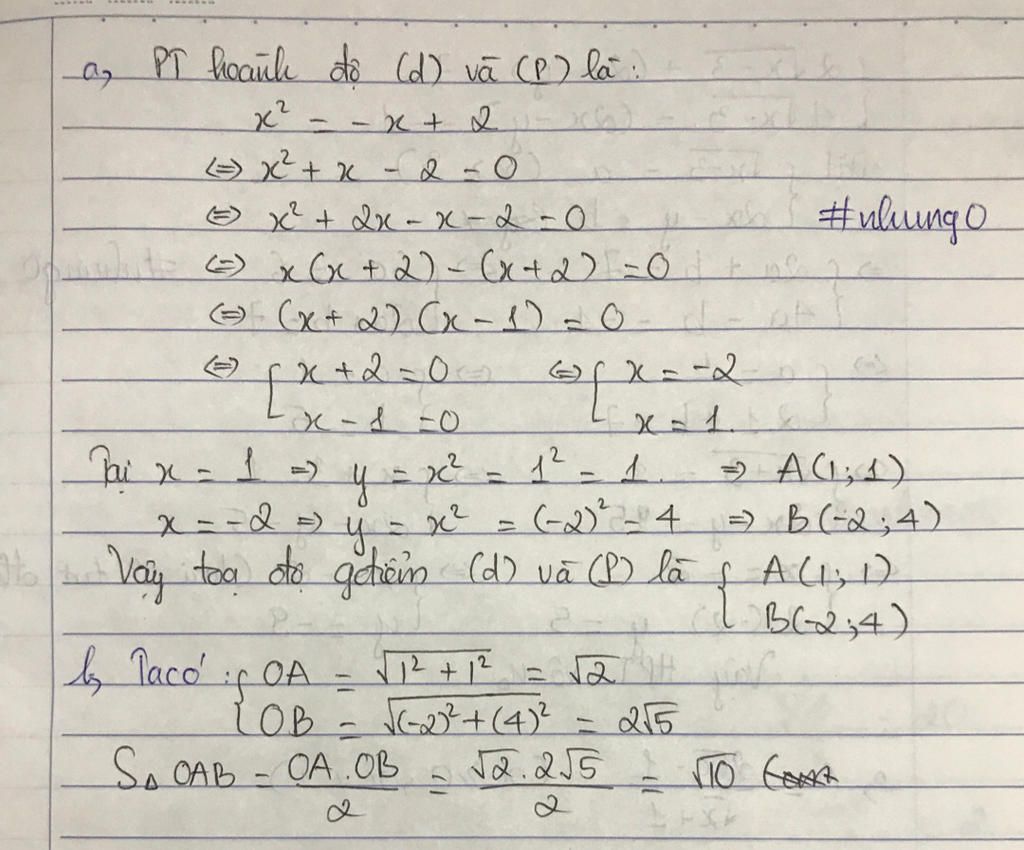 a, PT hoành độ (d) và (P) là:
x² = - x + 2
⇔ x² + x - 2 = 0
⇔ x² + 2x - x - 2 = 0 #nhung0
⇔ x(x + 2) - (x + 2) = 0
⇔ (x + 2) (x - 1) = 0
⇔ [ x + 2 = 0 ⇔ [ x = -2
x - 1 = 0 x = 1.
Tại x = 1 ⇒ y = x² = 1² = 1. ⇒ A(1; 1)
x = -2 ⇒ y = x² = (-2)² = 4 ⇒ B(-2; 4)
Vậy toạ độ gđiểm (d) và (P) là { A(1; 1)
B(-2; 4)
b, Ta có: { OA = √(1² + 1²) = √2
OB = √((-2)² + (4)²) = 2√5
S△OAB = OA.OB/2 = √2.2√5/2 = √10